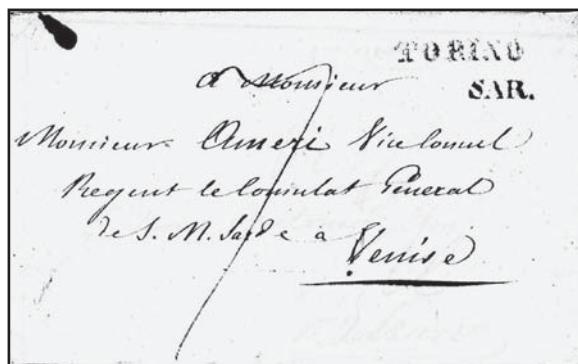 TORINO
SAR.
A Monsieur
Monsieur Ameri Vice Consul
Regent le Consulat Général
de S. M. Sarde a
Venise